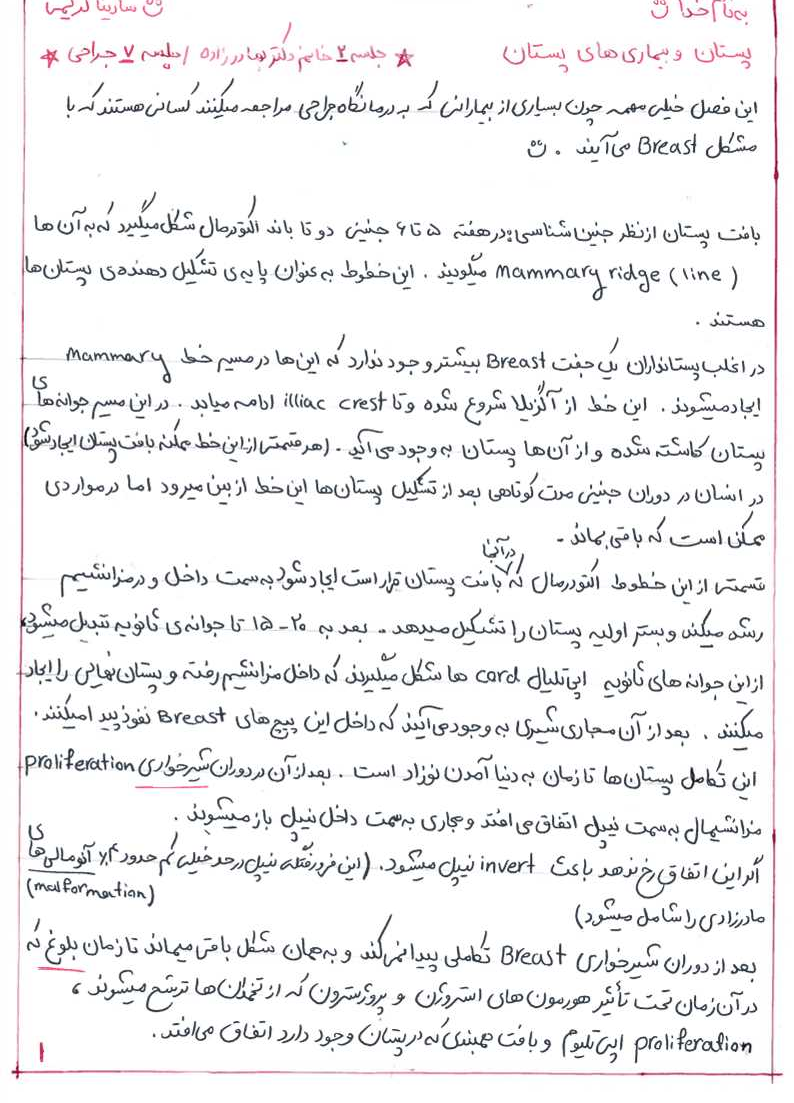 به نام خدا
پستان و بیماری های پستان
جلسه ۲ خانم دکتر بهادرزاده / جلسه ۷ جراحی
این فصل خیلی مهمه چون بسیاری از بیمارانی که به درمانگاه جراحی مراجعه میکنند کسانی هستند که با
مشکل Breast می آیند .
بافت پستان از نظر جنین شناسی: در هفته ۵ تا ۶ جنینی دو تا باند اکتودرمال شکل میگیرد که به آن ها
mammary ridge (line) میگویند . این خطوط به عنوان پایه ی تشکیل دهنده ی پستان ها
هستند .
در اغلب پستانداران یک جفت Breast بیشتر وجود ندارد که این ها در مسیر خط Mammary
ایجاد میشوند . این خط از آگزیلا شروع شده و تا illiac crest ادامه میابد . در این مسیر جوانه های
پستان کاشته شده و از آن ها پستان به وجود می آید . (هر قسمتی از این خط ممکنه بافت پستان ایجاد شود)
در انسان در دوران جنینی مدت کوتاهی بعد از تشکیل پستان ها این خط از بین میرود اما در مواردی
ممکن است که باقی بماند .
قسمتی از این خطوط اکتودرمال که در آنجا بافت پستان قرار است ایجاد شود به سمت داخل و در مزانشیم
رشد میکند و بستر اولیه پستان را تشکیل میدهد . بعد به ۲۰-۱۵ تا جوانه ی ثانویه تبدیل میشود
از این جوانه های ثانویه اپی تلیال cord ها شکل میگیرند که داخل مزانشیم رفته و پستان نهایی را ایجاد
میکنند . بعد از آن مجاری شیری به وجود می آیند که داخل این پیچ های Breast نفوذ پیدا میکنند .
این تکامل پستان ها تا زمان به دنیا آمدن نوزاد است . بعد از آن در دوران شیرخواری proliferation
مزانشیمال به سمت نیپل اتفاق می افتد و مجاری به سمت داخل نیپل باز میشوند .
اگر این اتفاق رخ ندهد باعث invert نیپل میشود. (این فرورفتگی نیپل در حد خیلی کم حدود ۴٪ آنومالی های (malformation)
مادرزادی را شامل میشود)
بعد از دوران شیرخواری Breast تکاملی پیدا نمی کند و به همان شکل باقی میماند تا زمان بلوغ که
در آن زمان تحت تأثیر هورمون های استروژن و پروژسترون که از تخمدان ها ترشح میشوند ،
proliferation اپی تلیوم و بافت همبندی که در پستان وجود دارد اتفاق می افتد .
۱